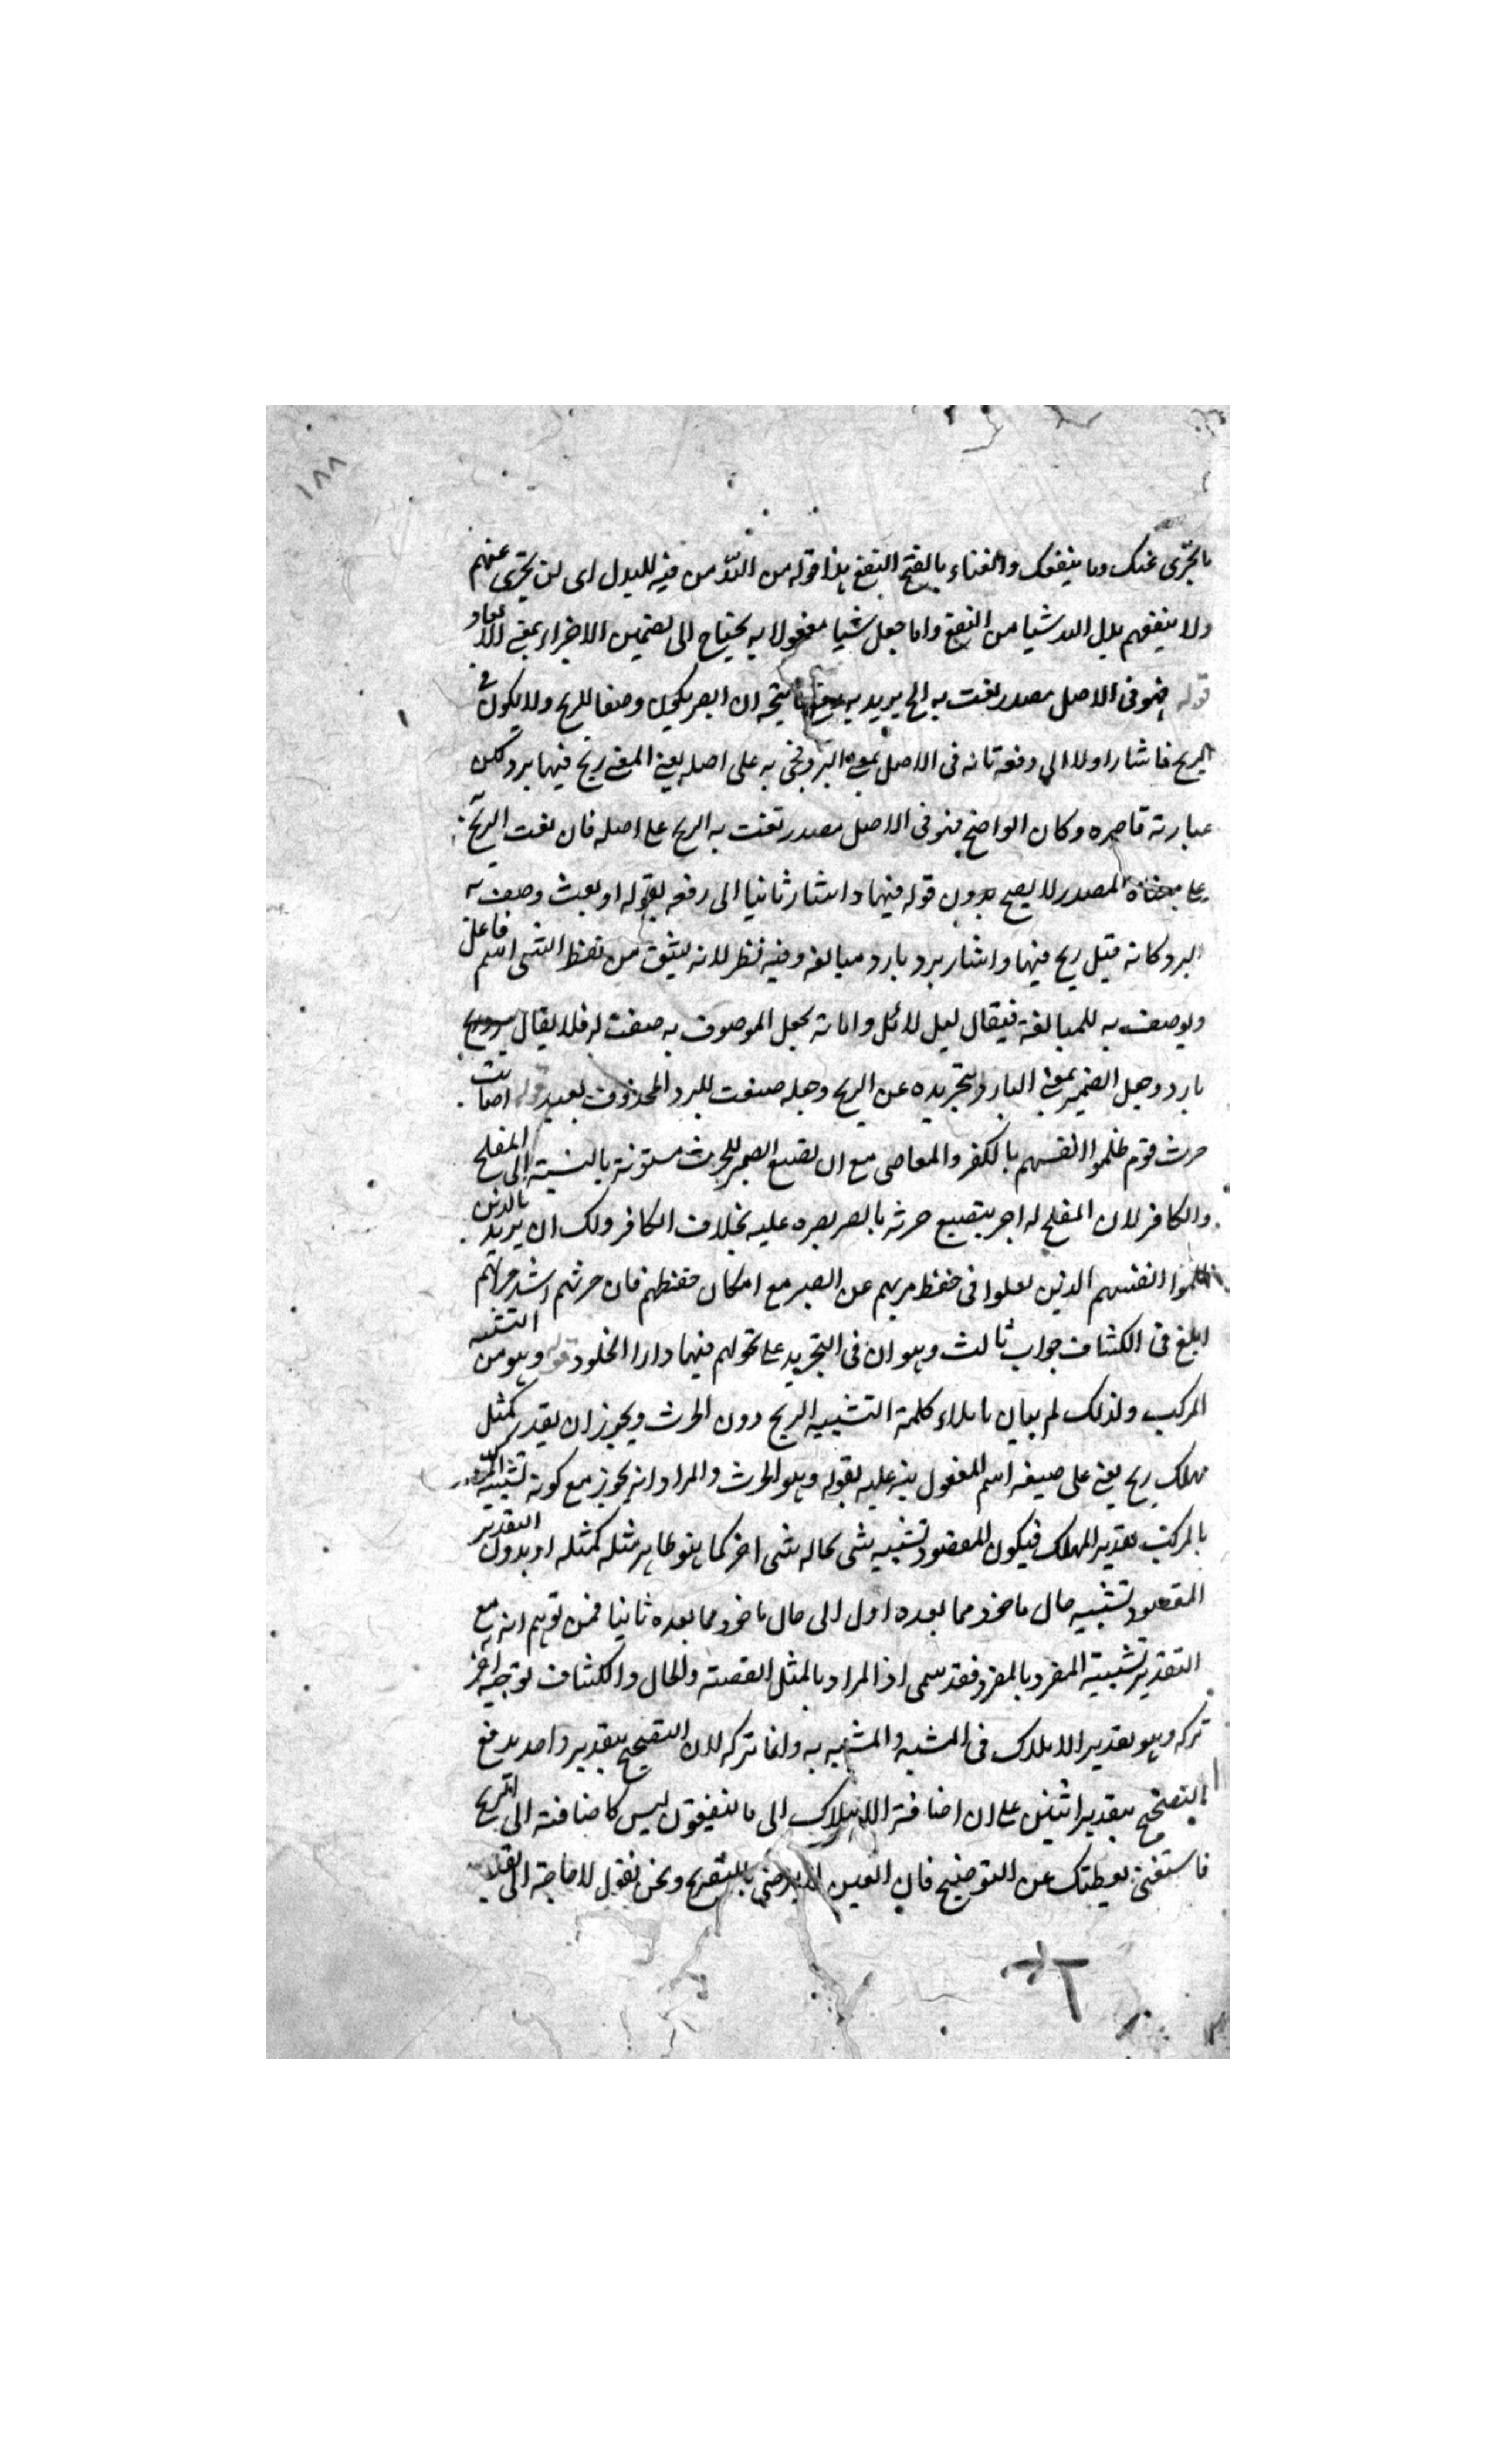 ١٨٨
ما يجزى عنك وما ينفعك والغناء بالفتح النفع هذا قوله من الله من فيه للبدل اى لن يجزى عنهم
ولا ينفعهم بدل الله شيا من النفع واما جعل شيا مفعولا به يحتاج الى تضمين الاجزاء بمعنى الابعاد
قوله فهو فى الاصل مصدر نعت به الخ يريد به دفع ما يتجه ان الصر يكون وصفا للريح ولا يكون فى
الريح فاشار اولا الى دفعه بانه فى الاصل بمعنى البرد فجئ به على اصله يعنى المعنى ريح فيها برد لكن
عبارته قاصره وكان الواضح فهو فى الاصل مصدر نعت به الريح على اصله فان نعت الريح
على معناه المصدر لا يصح بدون قوله فيها واشار ثانيا الى دفعه بقوله او نعت وصف به
البرد كانه قيل ريح فيها واشار برد بارد مبالغه وفيه نظر لانه يشتق من لفظ الشى اسم فاعل
ويوصف به للمبالغة فيقال ليل لائل واما ته يجعل الموصوف به صفت له فلا يقال برد ريح
بارد وجعل الضمير بمعنى البارد بتجريده عن الريح وجعله صفت للبرد المحذوف بعيد قوله اصابت
حرث قوم ظلموا انفسهم بالكفر والمعاصى مع ان تضييع الصر للحرث مستوية بالنسبته الى المفلح
والكافر لان المفلح له اجر بتضييع حرثه بالصر بصبره عليه بخلاف الكافر ولك ان يريد بالذين
ظلموا انفسهم الذين لعلوا فى حفظ مربهم عن الصبر مع امكان حفظهم فان حرثهم اشد مراتهم
ابلغ فى الكشاف جواب ثالث وهو ان فى التجريد على تخولهم فيها دار الخلود قوله وهو من التشبيه
المركب ولذلك لم يبال بايلاء كلمة التشبيه الريح دون الحرث ويجوز ان يقدر كمثل
مهلك ريح يعنى على صيغه اسم المفعول ينبه عليه بقوله وهو الحرث والمراد انه يجوز مع كونه تشبيه المركب
بالمركب تقدير المهلك فيكون المقصود تشبيه شى بحاله شى اخر كما هو ظاهر مثله كمثله او بدون التقدير
المقصود تشبيه حال ماخوذ مما بعده اول الى حال ماخوذ مما بعده ثانيا فمن توهم انه مع
التقدير تشبيه المفرد بالمفرد فقد سمى اذ المراد بالمثل القصته والحال والكشاف توجيه اخر
تركه وهو تقدير الاهلاك فى المشبه والمشبه به وانما تركه لان التصحيح بتقدير واحد يدفع
التصحيح بتقدير اثنين على ان اضافة الاهلاك الى ما ينفقون ليس كاضافته الى الريح
فاستغن بفطنتك عن التوضيح فان العين لا يرضى بالتصريح ونحن نقول لا حاجة الى